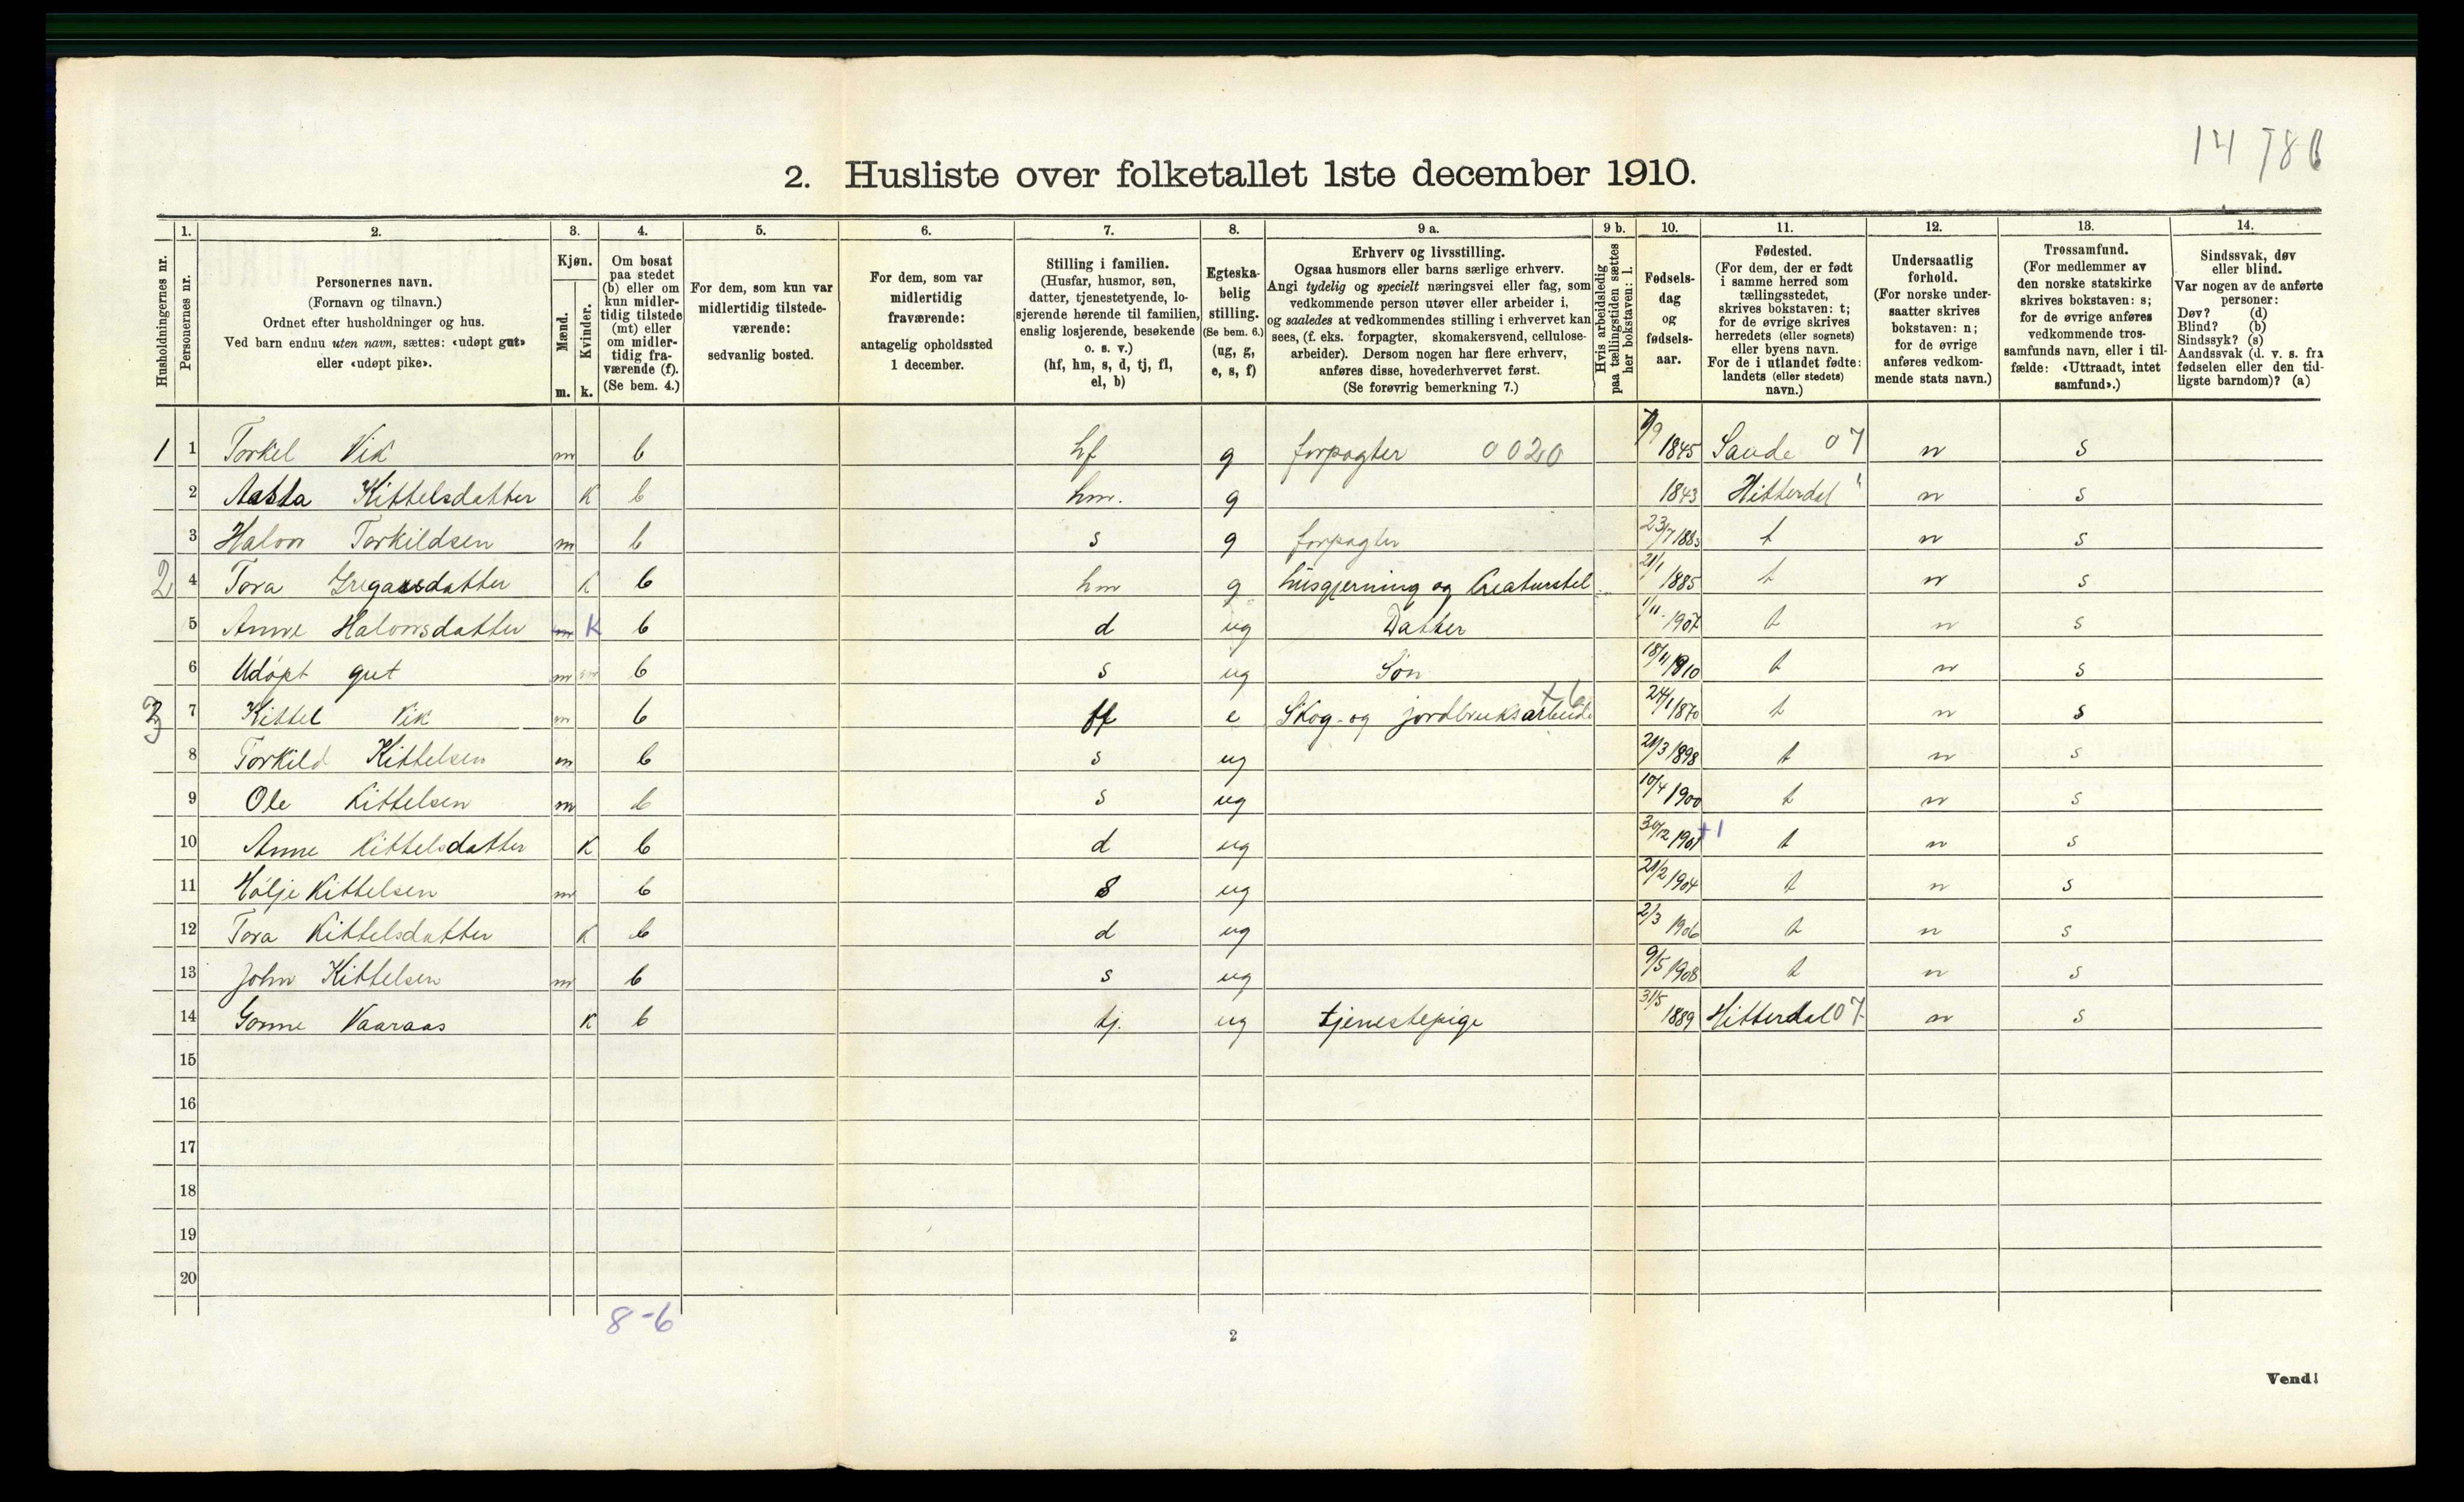 14 786
2. Husliste over folketallet 1ste december 1910.
1. 2. 3. 4. 5. 6. 7. 8. 9 a. 9 b. 10. 11. 12. 13. 14.
Husholdningernes nr.
Personernes nr.
Personernes navn.
(Fornavn og tilnavn.)
Ordnet efter husholdninger og hus.
Ved barn endnu uten navn, sættes: «udøpt gut»
eller «udøpt pike».
Kjøn.
Mænd.
Kvinder.
m. k.
Om bosat
paa stedet
(b) eller om
kun midler-
tidig tilstede
(mt) eller
om midler-
tidig fra-
værende (f).
(Se bem. 4.)
For dem, som kun var
midlertidig tilstede-
værende:
sedvanlig bosted.
For dem, som var
midlertidig
fraværende:
antagelig opholdssted
1 december.
Stilling i familien.
(Husfar, husmor, søn,
datter, tjenestetyende, lo-
sjerende hørende til familien,
enslig losjerende, besøkende
o. s. v.)
(hf, hm, s, d, tj, fl,
el, b)
Egteska-
belig
stilling.
(Se bem. 6.)
(ug, g,
e, s, f)
Erhverv og livsstilling.
Ogsaa husmors eller barns særlige erhverv.
Angi tydelig og specielt næringsvei eller fag, som
vedkommende person utøver eller arbeider i,
og saaledes at vedkommendes stilling i erhvervet kan
sees, (f. eks. forpagter, skomakersvend, cellulose-
arbeider). Dersom nogen har flere erhverv,
anføres disse, hovederhvervet først.
(Se forøvrig bemerkning 7.)
Hvis arbeidsledig
paa tællingstiden sættes
her bokstaven: l.
Fødsels-
dag
og
fødsels-
aar.
Fødested.
(For dem, der er født
i samme herred som
tællingsstedet,
skrives bokstaven: t;
for de øvrige skrives
herredets (eller sognets)
eller byens navn.
For de i utlandet fødte:
landets (eller stedets)
navn.)
Undersaatlig
forhold.
(For norske under-
saatter skrives
bokstaven: n;
for de øvrige
anføres vedkom-
mende stats navn.)
Trossamfund.
(For medlemmer av
den norske statskirke
skrives bokstaven: s;
for de øvrige anføres
vedkommende tros-
samfunds navn, eller i til-
fælde: «Uttraadt, intet
samfund».)
Sindssvak, døv
eller blind.
Var nogen av de anførte
personer:
Døv? (d)
Blind? (b)
Sindssyk? (s)
Aandssvak (d. v. s. fra
fødselen eller den tid-
ligste barndom)? (a)
1 1 Torkel Vik m b hf g forpagter 0020 7/9 1845 Saude 07 n s
2 Aasta Kittelsdatter k b hm. g 1843 Hitterdal " n s
3 Halvor Torkildsen m b s g forpagter 23/7 1883 t n s
2 4 Tora Gregarsdatter k b hm g husgjerning og Creaturstel 21/1 1885 t n s
5 Anne Halvorsdatter m K b d ug Datter 1/11 1907 t n s
6 Udøpt gut m b s ug Søn 18/11 1910 t n s
3 7 Kittel Vik m b ff e Skog- og jordbruksarbeide +6 24/1 1870 t n s
8 Torkild Kittelsen m b s ug 21/3 1898 t n s
9 Ole Kittelsen m b s ug 10/4 1900 t n s
10 Anne Kittelsdatter k b d ug 30/12 1901 +1 t n s
11 Hølje Kittelsen m b s ug 21/2 1904 t n s
12 Tora Kittelsdatter k b d ug 2/3 1906 t n s
13 John Kittelsen m b s ug 9/5 1908 t n s
14 Gonne Vaaraas k b tj. ug tjenestepige 31/5 1889 Hitterdal 07 n s
15
16
17
18
19
20
8-6
2
Vend!